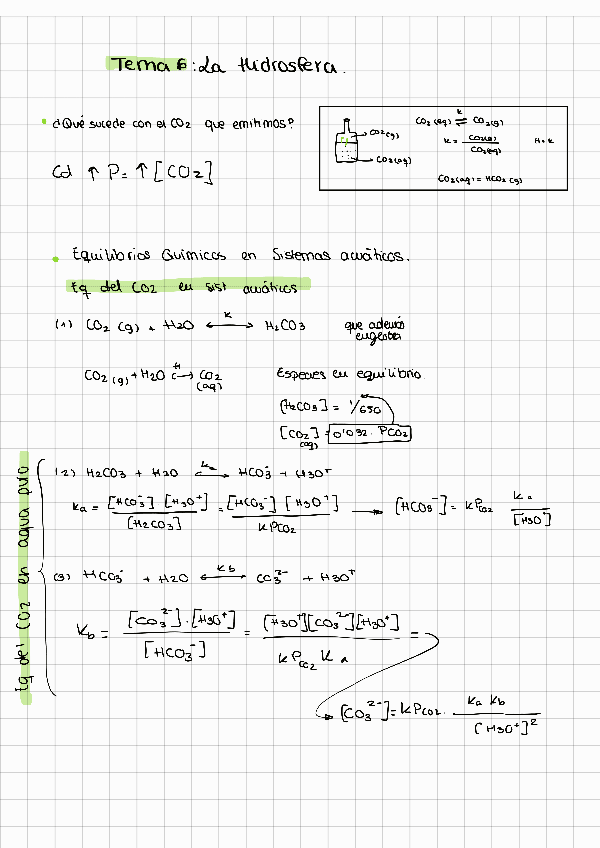 Tema 6: La Hidrosfera.
¿Qué sucede con el CO2 que emitimos?
↑ P = ↑ [CO2]
CO2 (g)
CO2 (aq)
CO2 (aq) ⇌ CO2 (g)
K
K = CO2(g) / CO2(aq)
H = K
CO2 (aq) = HCO2 (g)
Equilibrios Químicos en Sistemas acuáticos.
Eq del CO2 en sist acuáticos
(1) CO2 (g) + H2O ⟷ H2CO3 que además
K
CO2 (g) + H2O ⟷ CO2 (aq) Especies en equilibrio
H
[H2CO3] = 1/650
[CO2] (aq) = 0'032 · PCO2
Eq del CO2 en agua pura
(2) H2CO3 + H2O ⟷ HCO3⁻ + H3O⁺
Ka
Ka = [HCO3⁻] [H3O⁺] / [H2CO3] = [HCO3⁻] [H3O⁺] / K PCO2 → [HCO3⁻] = K PCO2 Ka / [H3O⁺]
(3) HCO3⁻ + H2O ⟷ CO3²⁻ + H3O⁺
Kb
Kb = [CO3²⁻] · [H3O⁺] / [HCO3⁻] = [H3O⁺] [CO3²⁻] [H3O⁺] / K PCO2 Ka =
[CO3²⁻] = K PCO2 · Ka Kb / [H3O⁺]²